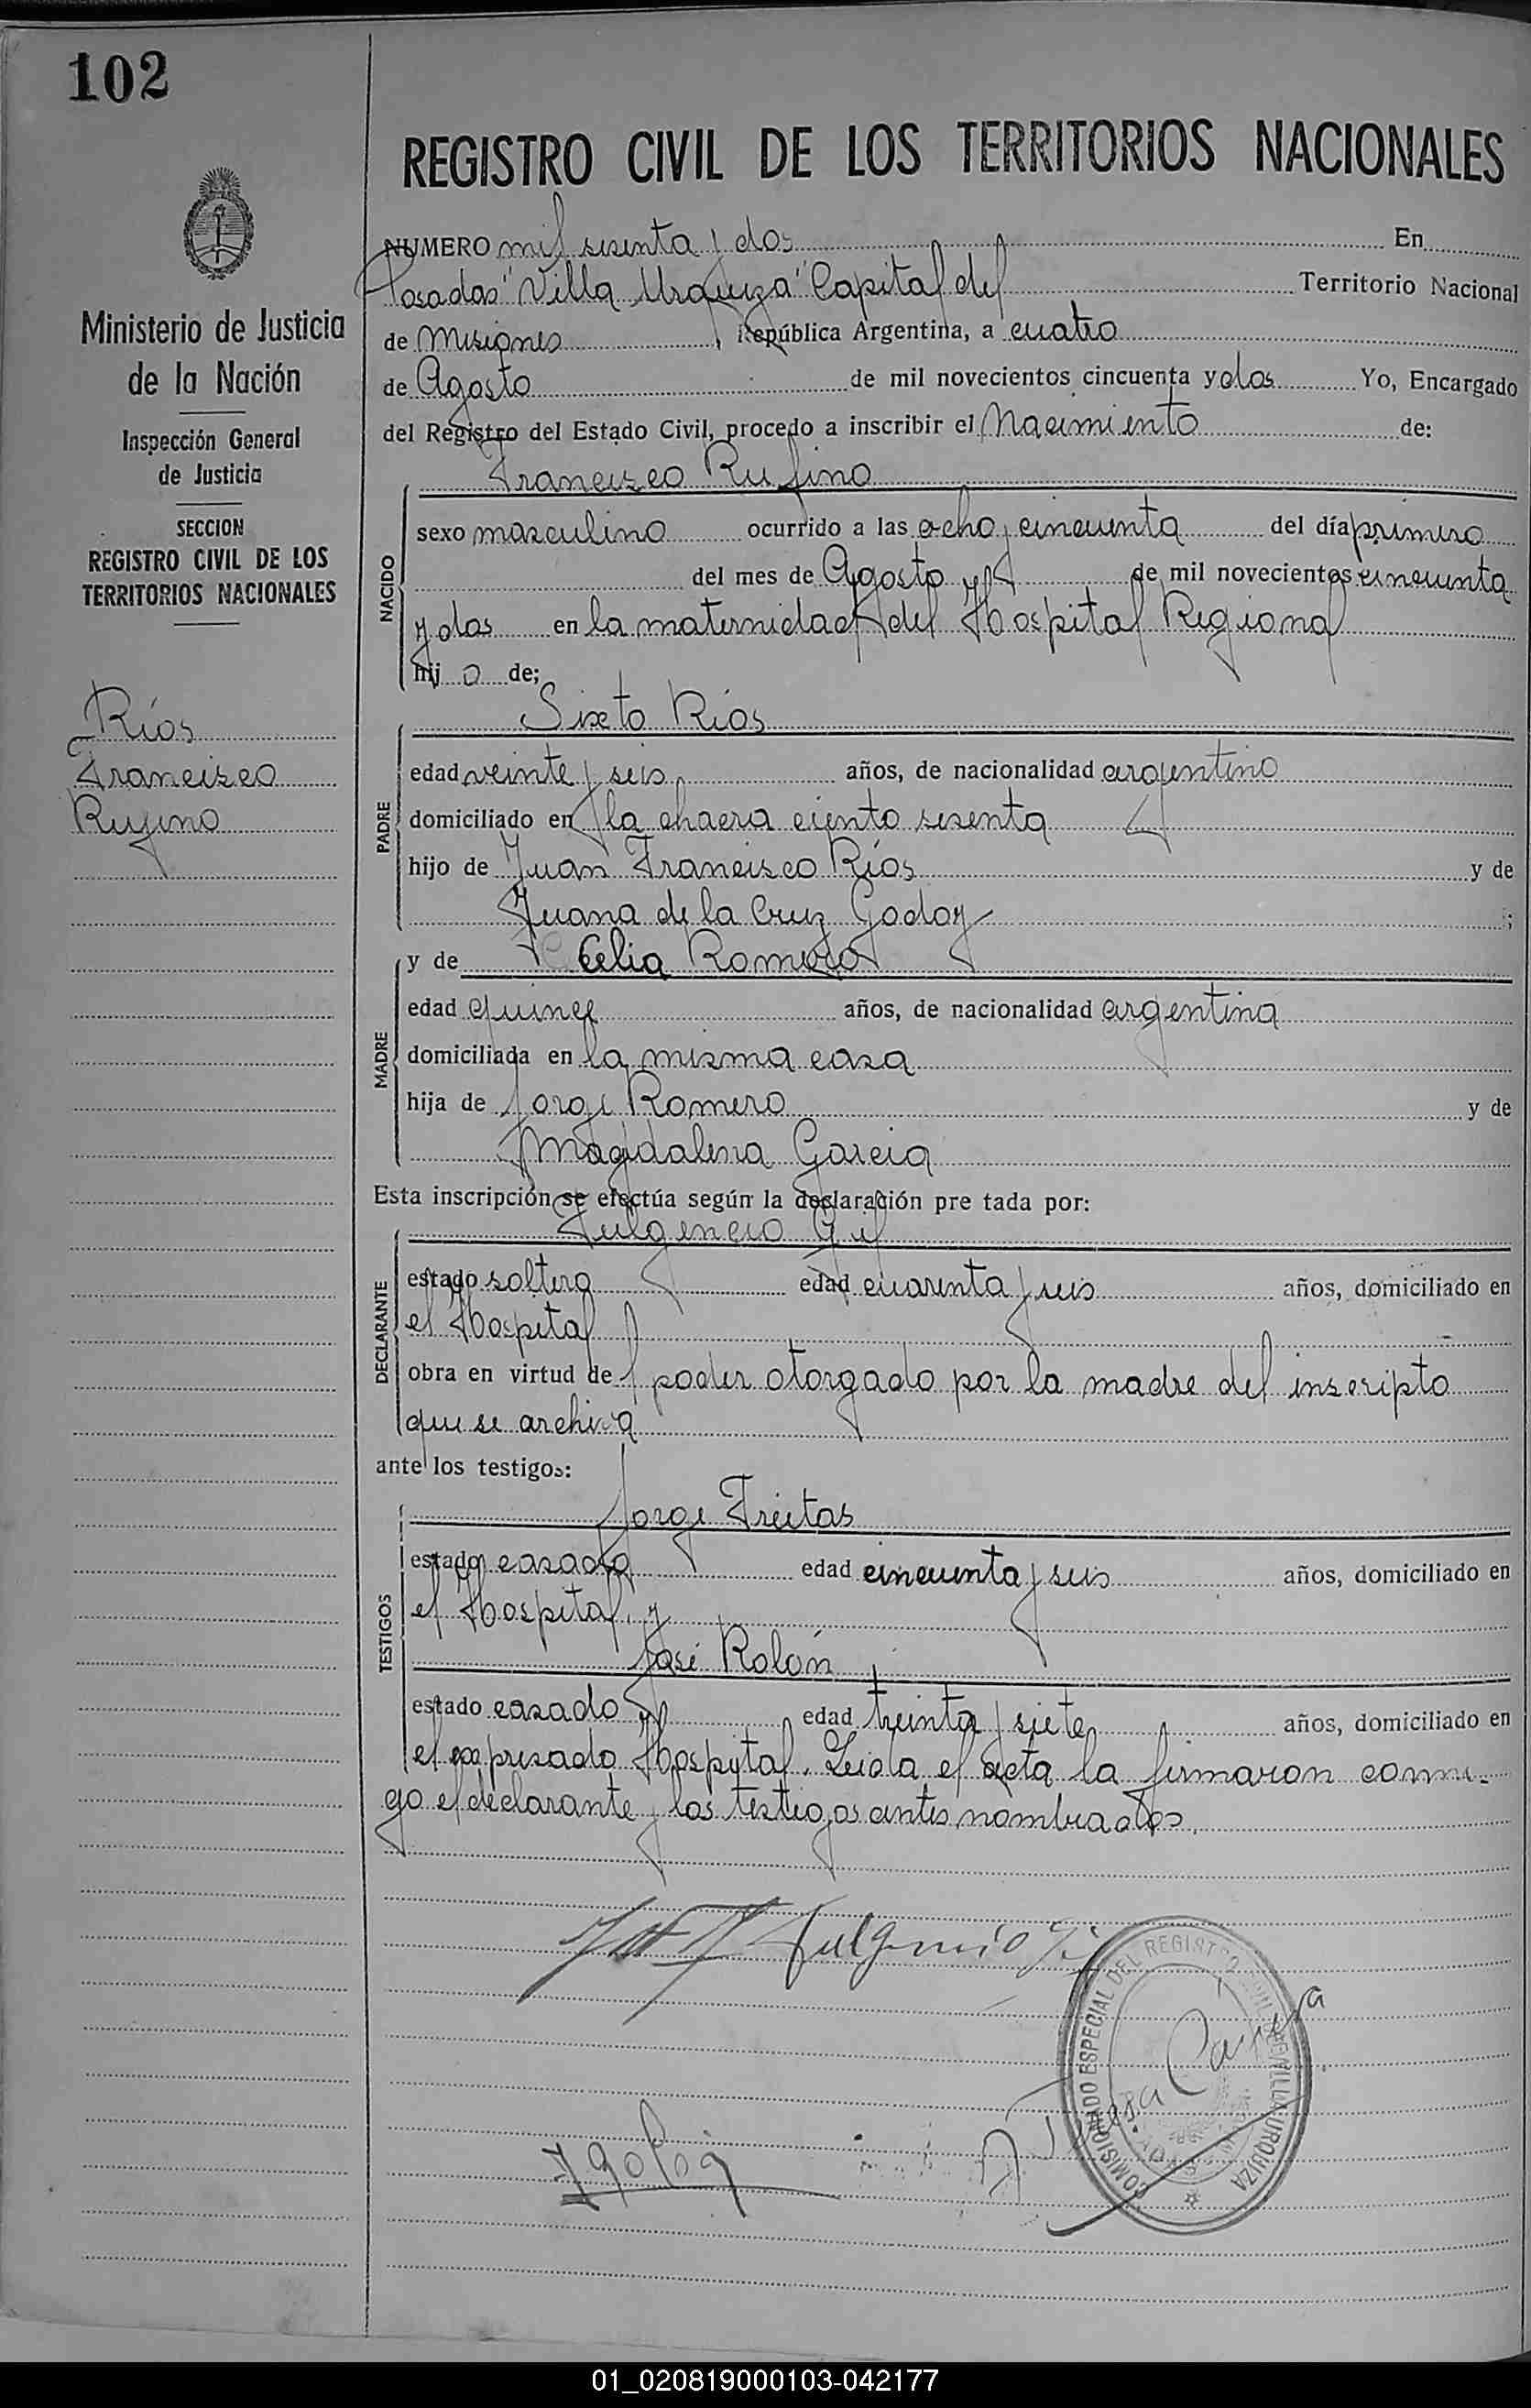 102
REGISTRO CIVIL DE LOS TERRITORIOS NACIONALES
Ministerio de Justicia
de la Nación
Inspección General
de Justicia
SECCION
REGISTRO CIVIL DE LOS
TERRITORIOS NACIONALES
Ríos
Francisco
Rufino
NUMERO mil sesenta y dos En
Posadas "Villa Urquiza" Capital del Territorio Nacional
de Misiones, República Argentina, a cuatro
de Agosto de mil novecientos cincuenta y dos Yo, Encargado
del Registro del Estado Civil, procedo a inscribir el Nacimiento de:
Francisco Rufino
NACIDO
sexo masculino ocurrido a las ocho y cincuenta del día primero
del mes de Agosto de mil novecientos cincuenta
y dos en la maternidad del Hospital Regional
hijo de;
Sixto Ríos
PADRE
edad veinte y seis años, de nacionalidad argentino
domiciliado en la chacra ciento sesenta
hijo de Juan Francisco Ríos y de
Juana de la Cruz Godoy ;
y de Celia Romero
MADRE
edad quince años, de nacionalidad argentina
domiciliada en la misma casa
hija de Jorge Romero y de
Magdalena García
Esta inscripción se efectúa según la declaración pre tada por:
Fulgencio Gil
DECLARANTE
estado soltero edad cuarenta y seis años, domiciliado en
el Hospital
obra en virtud del poder otorgado por la madre del inscripto
que se archiva
ante los testigos:
Jorge Freitas
TESTIGOS
estado casado edad cincuenta y seis años, domiciliado en
el Hospital, y
José Rolón
estado casado edad treinta y siete años, domiciliado en
el expresado Hospital. Leida el acta la firmaron conmi-
go el declarante y los testigos antes nombrados.
Fulgencio Gil
COMISIONADO ESPECIAL DEL REGISTRO CIVIL DE VILLA URQUIZA
01_020819000103-042177